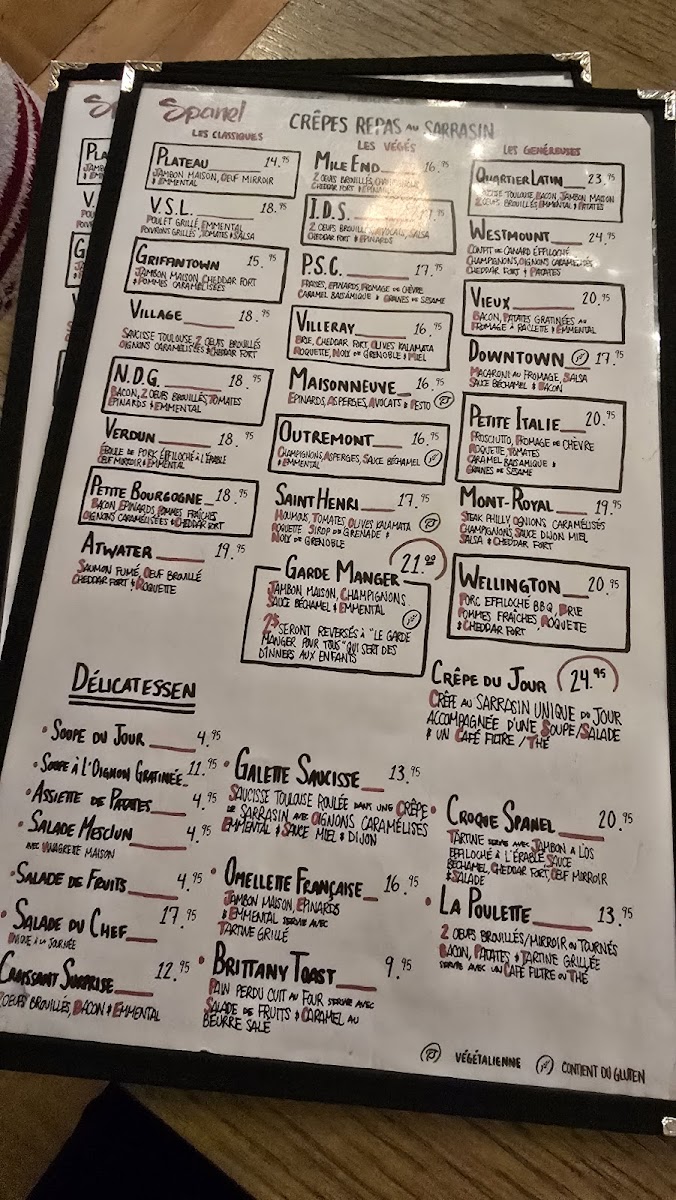 Spanel
CRÊPES REPAS AU SARRASIN
LES CLASSIQUES
PLATEAU 14.95
JAMBON MAISON, OEUF MIRROIR
& EMMENTAL
V.S.L. 18.95
POULET GRILLÉ, EMMENTAL
POIVRONS GRILLÉS, TOMATES & SALSA
GRIFFINTOWN 15.95
JAMBON MAISON, CHEDDAR FORT
& POMMES CARAMÉLISÉES
VILLAGE 18.95
SAUCISSE TOULOUSE, 2 OEUFS BROUILLÉS
OIGNONS CARAMÉLISÉS & CHEDDAR FORT
N.D.G. 18.95
BACON, 2 OEUFS BROUILLÉS, TOMATES
EPINARDS & EMMENTAL
VERDUN 18.95
ÉPAULE DE PORC EFFILOCHÉ À L'ÉRABLE
OEUF MIRROIR & EMMENTAL
PETITE BOURGOGNE 18.95
BACON, EPINARDS, POMMES FRAÎCHES
OIGNONS CARAMÉLISÉES & CHEDDAR FORT
ATWATER 19.95
SAUMON FUMÉ, OEUF BROUILLÉ
CHEDDAR FORT & ROQUETTE
LES VÉGÉS
MILE END 16.95
2 OEUFS BROUILLÉS,
CHEDDAR FORT & EPINARDS
I.D.S. 17.95
2 OEUFS BROUILLÉS, AVOCATS, SALSA
CHEDDAR FORT & EPINARDS
P.S.C. 17.95
FRAISES, EPINARDS, FROMAGE DE CHÈVRE
CARAMEL BALSAMIQUE & GRAINES DE SESAME
VILLERAY 16.95
BRIE, CHEDDAR FORT, OLIVES KALAMATA
ROQUETTE, NOIX DE GRENOBLE & MIEL
MAISONNEUVE 16.95
EPINARDS, ASPERGES, AVOCATS & PESTO
OUTREMONT 16.95
CHAMPIGNONS, ASPERGES, SAUCE BÉCHAMEL
& EMMENTAL
SAINT HENRI 17.95
HOUMOUS, TOMATES, OLIVES KALAMATA
ROQUETTE SIROP DE GRENADE &
NOIX DE GRENOBLE
GARDE MANGER 21.00
JAMBON MAISON, CHAMPIGNONS
SAUCE BÉCHAMEL & EMMENTAL
SERONT REVERSÉS À "LE GARDE
MANGER POUR TOUS" QUI SERT DES
DÎNERS AUX ENFANTS
LES GENÉREUSES
QUARTIER LATIN 23.95
SAUCISSE TOULOUSE, BACON, JAMBON MAISON
2 OEUFS BROUILLÉS, EMMENTAL & PATATES
WESTMOUNT 24.95
CONFIT DE CANARD EFFILOCHÉ
CHAMPIGNONS, OIGNONS CARAMÉLISÉS
CHEDDAR FORT & PATATES
VIEUX 20.95
BACON, PATATES GRATINÉES AU
FROMAGE À RACLETTE & EMMENTAL
DOWNTOWN 17.95
MACARONI AU FROMAGE, SALSA
SAUCE BÉCHAMEL & BACON
PETITE ITALIE 20.95
PROSCIUTTO, FROMAGE DE CHÈVRE
ROQUETTE, TOMATES
CARAMEL BALSAMIQUE &
GRAINES DE SESAME
MONT-ROYAL 19.95
STEAK PHILLY OGNIONS CARAMÉLISÉS
CHAMPIGNONS, SAUCE DIJON MIEL
SALSA & CHEDDAR FORT
WELLINGTON 20.95
PORC EFFILOCHÉ BBQ, BRIE
POMMES FRAÎCHES, ROQUETTE
& CHEDDAR FORT
CRÊPE DU JOUR 24.95
CRÊPE AU SARRASIN UNIQUE DU JOUR
ACCOMPAGNÉE D'UNE SOUPE/SALADE
& UN CAFÉ FILTRE/THÉ
DÉLICATESSEN
• SOUPE DU JOUR 4.95
• SOUPE À L'OIGNON GRATINÉE 11.95
• ASSIETTE DE PATATES 4.95
• SALADE MESCLUN 4.95
AVEC VINAGRETTE MAISON
• SALADE DE FRUITS 4.95
• SALADE DU CHEF 17.95
UNIQUE À LA JOURNÉE
CROISSANT SURPRISE 12.95
2 OEUFS BROUILLÉS, BACON & EMMENTAL
• GALETTE SAUCISSE 13.95
SAUCISSE TOULOUSE ROULÉE DANS UNE CRÊPE
DE SARRASIN AVEC OIGNONS CARAMÉLISÉS
EMMENTAL & SAUCE MIEL & DIJON
• OMELLETTE FRANÇAISE 16.95
JAMBON MAISON, EPINARDS
& EMMENTAL SERVIE AVEC
TARTINE GRILLÉ
• BRITTANY TOAST 9.95
PAIN PERDU CUIT AU FOUR SERVIE AVEC
SALADE DE FRUITS & CARAMEL AU
BEURRE SALÉ
• CROQUE SPANEL 20.95
TARTINE SERVIE AVEC JAMBON À L'OS
EFFILOCHÉ À L'ÉRABLE, SAUCE
BÉCHAMEL, CHEDDAR FORT, OEUF MIRROIR
& SALADE
• LA POULETTE 13.95
2 OEUFS BROUILLÉS/MIRROIR OU TOURNÉS
BACON, PATATES & TARTINE GRILLÉE
SERVIE AVEC UN CAFÉ FILTRE OU THÉ
VÉGÉTALIENNE
CONTIENT DU GLUTEN